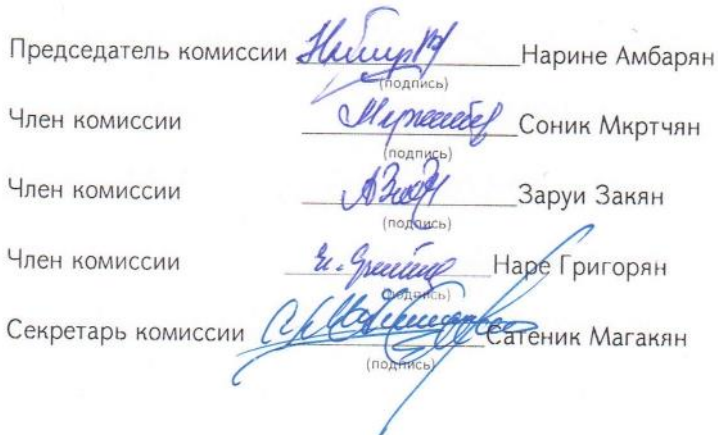 Председатель комиссии Нарине Амбарян
(подпись)
Член комиссии Соник Мкртчян
(подпись)
Член комиссии Заруи Закян
(подпись)
Член комиссии Наре Григорян
(подпись)
Секретарь комиссии Сатеник Магакян
(подпись)